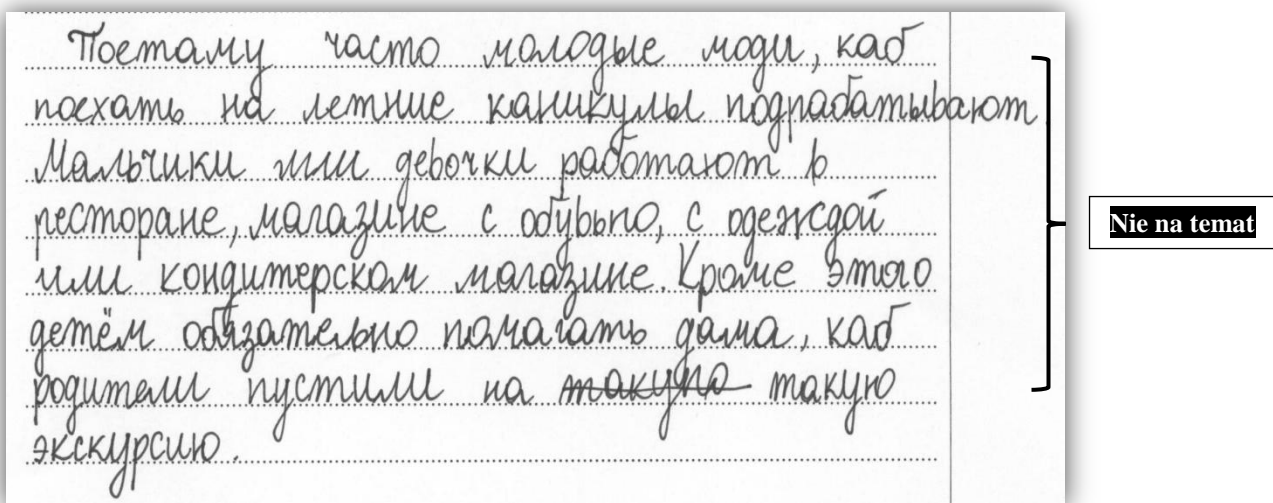 Поетаму часто молодые люди, каб
поехать на летние каникулы подрабатывают
Мальчики или девочки работают в
ресторане, магазине с обувью, с одеждой
или кондитерском магазине. Кроме этого
детём обязательно помагать дама, каб
родители пустили на такую такую
экскурсию.
Nie na temat